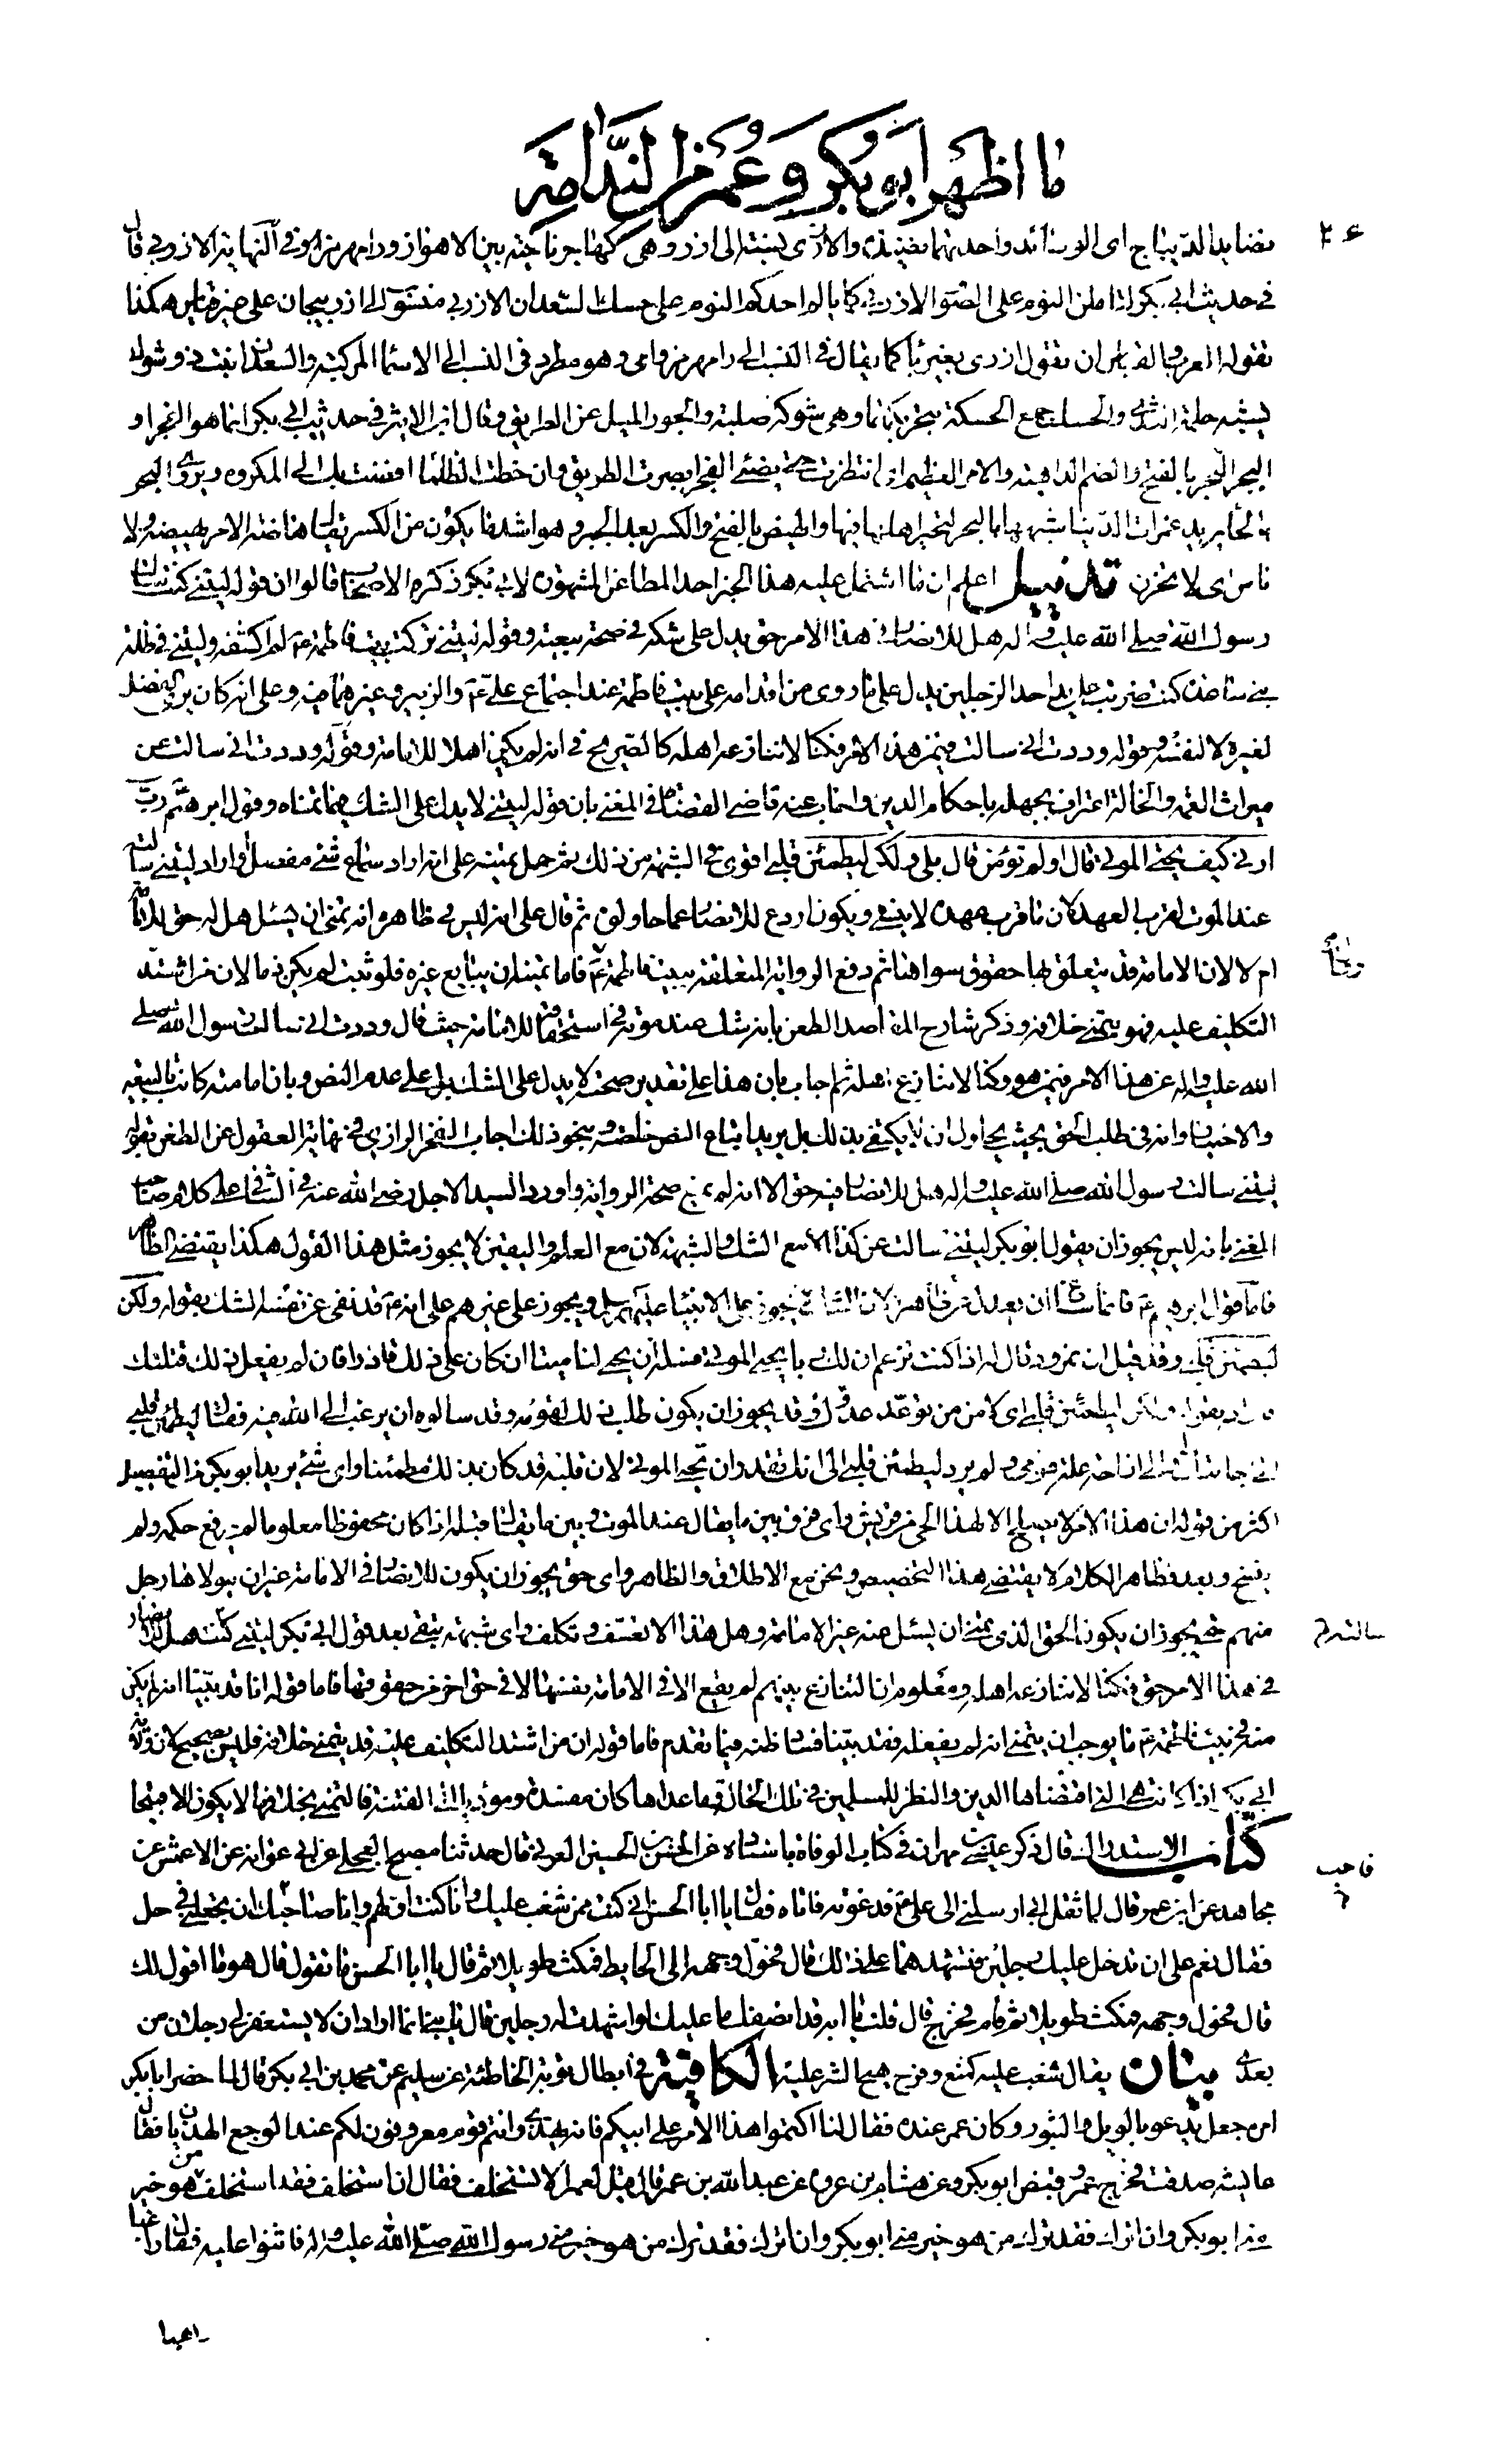 ما اظهر ابو بكر و عمر من الندامة
نضايد الديباج اى الوسائد واحدتها نضيدة والاذرى نسبة الى اذر وهى كهاجر ناحية بين الاهواز ورامهرمز وفى النهاية الاذربى قال
فى حديث ابى بكر لتألمن النوم على الصوف الاذربى كما يألم احدكم النوم على حسك السعدان الاذربى منسوب الى اذربيجان على غير قياس هكذا
تقوله العرب والقياس ان تقول اذرى بغير باء كما يقال فى النسب الى رامهرمز رامى وهو مطرد فى النسب الى الاسماء المركبة والسعدان نبت ذو شوك
يشبه حلمة الثدى والحسك جمع الحسكة بتحريكهما وهى شوكة صلبة والجور الميل عن الطريق وقال ابن الاثير فى حديث ابى بكر انما هو الفجر او
البجر البجر بالفتح والضم الداهية والامر العظيم اى ان انتظرت حتى يضئ الفجر ابصرت الطريق وان خبطت الظلماء افضت بك الى المكروه ويروى البحر
بالحاء يريد غمرات الدنيا شبهها بالبحر لتحير اهلها فيها والهيض بالفتح والكسر بعد الجبر وهو اشد ما يكون من الكسر يقال هاضه الامر يهيضه ولا
تاس اى لا تحزن تذييل اعلم ان ما اشتمل عليه هذا الخبر احد المطاعن المشهورة لابى بكر ذكره الاصحاب قالوا ان قوله ليتنى كنت سالت
رسول الله صلى الله عليه واله هل للانصار فى هذا الامر حق يدل على شكه فى صحة بيعته وقوله ليتنى تركت بيت فاطمة ع لم اكشفه وليتنى فى ظلة
بنى ساعدة كنت ضربت على يد احد الرجلين يدل على ما روى من اقدامه على بيت فاطمة عند اجتماع على ع والزبير وغيرهما فيه وعلى انه كان يرى الفضل
لغيره لا لنفسه وقوله وددت انى سالت فيمن هذا الامر فكنا لا ننازعه اهله كالصريح فى انه لم يكن اهلا للامامة وقوله وددت انى سالت عن
ميراث العمة والخالة اعتراف بجهله باحكام الدين واجاب عنه قاضى القضاة فى المغنى بان قوله ليتنى لا يدل على الشك فيما تمناه وقول ابرهيم رب
ارنى كيف تحيى الموتى قال اولم تؤمن قال بلى ولكن ليطمئن قلبى اقوى فى الشبهة من ذلك ثم حمل تمنيه على انه اراد سماع شئ مفصل او اراد ليتنى سالته
عند الموت لقرب العهد لان ما قرب عهده لا ينسى ويكون اردع للانصار عما حاولوه ثم قال على انه ليس فى ظاهره انه تمنى ان يسئل هل له حق للامامة
ام لا لان الامامة قد يتعلق بها حقوق سواها ثم دفع الرواية المتعلقة ببيت فاطمة ع فاما تمنيه ان يبايع غيره فلو ثبت لم يكن ذما لان من اشتد
التكليف عليه فهو يتمنى خلافه وذكر شارح المقاصد الطعن بانه شك عند موته فى استحقاقه للامامة حيث قال وددت انى سالت رسول الله صلى
الله عليه واله عن هذا الامر فيمن هو وكنا لا ننازع اهله ثم اجاب بان هذا على تقدير صحته لا يدل على الشك بل على عدم النص وبان امامته كانت بالبيعة
والاختيار وانه فى طلب الحق بحيث يحاول ان لا يكتفى بذلك بل يريد اتباع النص خاصة وبنحو ذلك اجاب الفخر الرازى فى نهاية العقول عن الطعن بقوله
ليتنى سالت رسول الله صلى الله عليه واله هل للانصار فيه حق الا انه لم يمنع صحة الرواية واورد السيد الاجل رضى الله عنه فى الشافى على كلام صاحب
المغنى بانه ليس يجوز ان يقول ابو بكر ليتنى سالت عن كذا الا مع الشك والشبهة لان مع العلم واليقين لا يجوز مثل هذا القول هكذا يقتضى الظاهر
فاما قول ابرهيم ع فانما ساغ ان يعدل عن ظاهره لان الشك لا يجوز على الانبياء عليهم السلم ويجوز على غيرهم على انه ع قد نفى عن نفسه الشك بقوله بلى ولكن
ليطمئن قلبى وقد قيل ان نمرود قال له اذا كنت تزعم ان لك ربا يحيى الموتى فسله ان يحيى لنا ميتا ان كان على ذلك قادرا فان لم يفعل ذلك قتلتك
فاراد بقوله ولكن ليطمئن قلبى اى لامن من توعد عدوك وقد يجوز ان يكون طلب ذلك لقومه وقد سالوه ان يرغب الى الله فيه فقال ليطمئن قلبى
الى اجابتك لى والى ازاحة علة قومى ولم يرد ليطمئن قلبى الى انك تقدر ان تحيى الموتى لان قلبه قد كان بذلك مطمئنا واى شئ يريد ابو بكر من التفصيل
اكثر من قوله ان هذا الامر لا يصلح الا لهذا الحى من قريش واى فرق بين ما يقال عند الموت وبين ما يقال قبله اذا كان محفوظا معلوما لم يرفع حكمه ولم
ينسخ وبعد فظاهر الكلام لا يقتضى هذا التخصيص ونحن مع الاطلاق والظاهر واى حق يجوز ان يكون للانصار فى الامامة غير ان يتولاها رجل
منهم حتى يجوز ان يكون الحق الذى تمنى ان يسئل عنه غير الامامة وهل هذا الا تعسف وتكلف واى شبهة تبقى بعد قول ابى بكر ليتنى كنت هل للانصار
فى هذا الامر حق فكنا لا ننازعه اهله ومعلوم ان التنازع بينهم لم يقع الا فى الامامة نفسها لا فى حق اخر من حقوقها فاما قوله انا قد بينا انه لم يكن
منه فى بيت فاطمة ع ما يوجب ان يتمنى انه لم يفعله فقد بينا فساد ظنه فيما تقدم فاما قوله ان من اشتد التكليف عليه قد يتمنى خلافه فليس بصحيح لان ولاية
ابى بكر اذا كانت هى التى اقتضاها الدين والنظر للمسلمين فى تلك الحال وما عداها كان مفسدة ومؤديا الى الفتنة فالتمنى بخلافها لا يكون الا قبيحا
كتاب الاستدراك قال ذكر عيسى بن مهران فى كتاب الوفاة باسناده عن الحسن بن الحسين العرنى قال حدثنا مصبح العجلى عن ابى عوانة عن الاعمش عن
مجاهد عن ابن عمر قال لما ثقل ابى ارسلنى الى على ع فدعوته فاتاه فقال يا ابا الحسن انى كنت ممن شغب عليك وانا كنت اولهم وانا صاحبك ان تجعلنى فى حل
فقال نعم على ان تدخل عليك رجلين فتشهدهما على ذلك قال فحول وجهه الى الحايط فمكث طويلا ثم قال يا ابا الحسن ما تقول قال هو ما اقول لك
قال فحول وجهه فمكث طويلا ثم قام فخرج قال قلت يا ابه قد انصفك ما عليك لو اشهدت له رجلين قال يا بنى انما اراد ان لا يستغفر لى رجلان من
بعدى بيان يقال شغب عليه كمنع وفرح هيج الشر عليه الكافية فى ابطال توبة الخاطئة عن سليم عن محمد بن ابى بكر قال لما حضر ابا بكر
امره جعل يدعو بالويل والثبور وكان عمر عنده فقال لنا اكتموا هذا الامر على ابيكم فانه يهذى وانتم قوم معروفون لكم عند الوجع الهذيان فقالت
عايشة صدقت فخرج عمر وقبض ابو بكر وعن هشام بن عروة عن عبد الله بن عمر قال قيل لعمر الا تستخلف فقال ان استخلف فقد استخلف من هو خير
منى ابو بكر وان اترك فقد ترك من هو خير منى ابو بكر وان اترك فقد ترك من هو خير منى رسول الله صلى الله عليه واله فاثنوا عليه فقال راغبا
راهبا